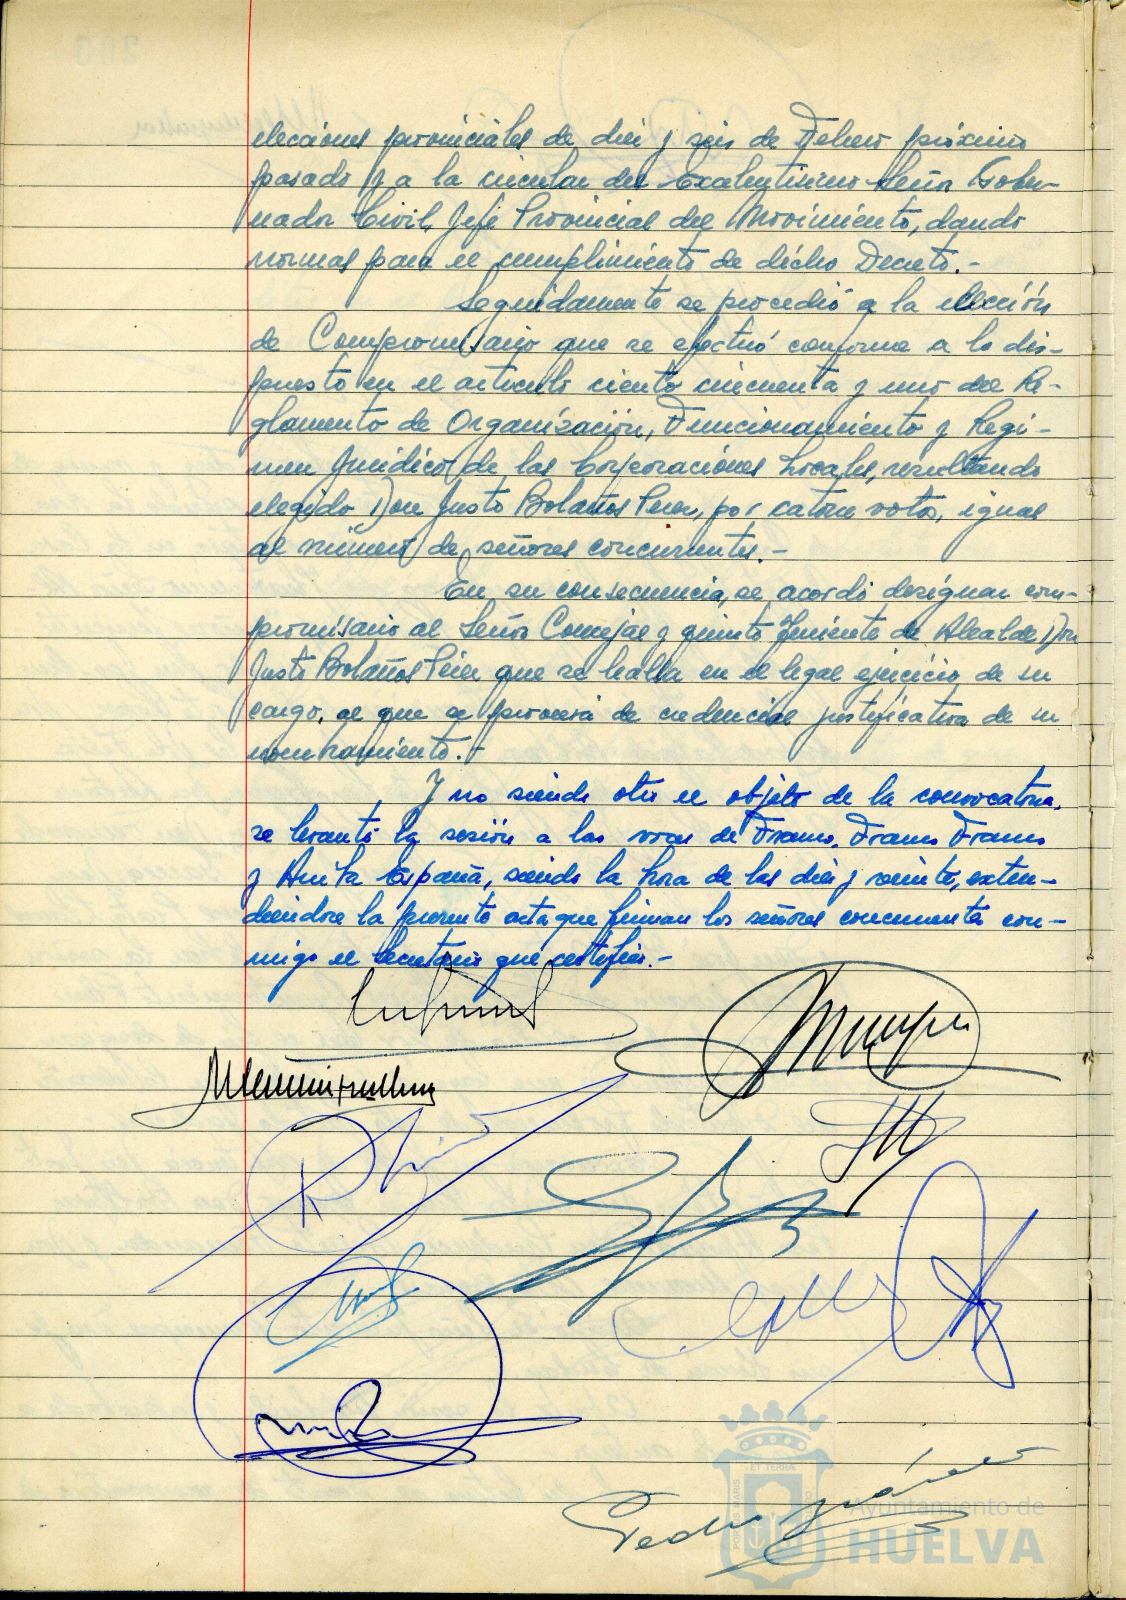 elecciones provinciales de diez y seis de Febrero próximo
pasado y a la circular del Excelentísimo Señor Gober-
nador Civil, Jefe Provincial del Movimiento, dando
normas para el cumplimiento de dicho Decreto.-
Seguidamente se procedió a la elección
de Compromisario que se efectuó conforme a lo dis-
puesto en el artículo ciento cincuenta y uno del Re-
glamento de Organización, Funcionamiento y Regi-
men Jurídico de las Corporaciones Locales, resultando
elegido Don Justo Bolaños Perez, por catorce votos, igual
al número de señores concurrentes.-
En su consecuencia, se acordó designar com-
promisario al Señor Concejal y quinto Teniente de Alcalde Don
Justo Bolaños Perez que se halla en el legal ejercicio de su
cargo, al que se proveerá de credencial justificativa de su
nombramiento.-
Y no siendo otro el objeto de la convocatoria,
se levantó la sesión a las voces de Franco, Franco Franco
y Arriba España, siendo la hora de las diez y veinte, exten-
diendose la presente acta que firman los señores concurrentes con-
migo el Secretario que certifico.-
Pedro
ET TERRA
Ayuntamiento de
HUELVA